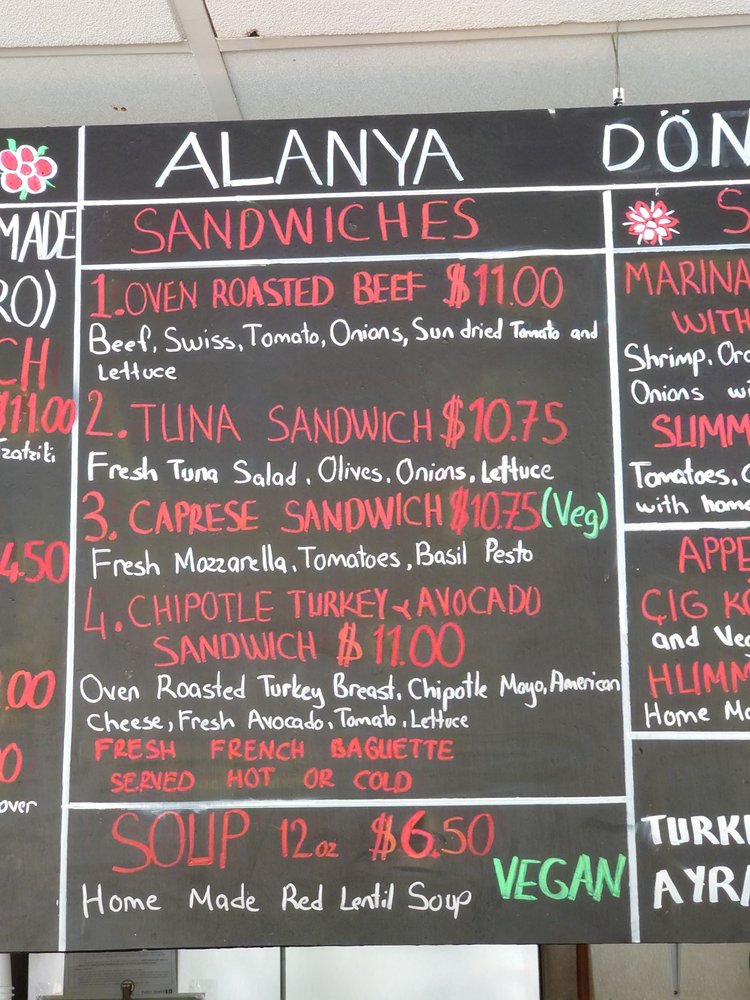 ALANYA DÖN
MADE
RO)
CH
$11.00
Tzatziki
4.50
.00
0
over
SANDWICHES
1. OVEN ROASTED BEEF $11.00
Beef, Swiss, Tomato, Onions, Sun dried Tomato and
Lettuce
2. TUNA SANDWICH $10.75
Fresh Tuna Salad, Olives, Onions, Lettuce
3. CAPRESE SANDWICH $10.75 (Veg)
Fresh Mozzarella, Tomatoes, Basil Pesto
4. CHIPOTLE TURKEY & AVOCADO
SANDWICH $11.00
Oven Roasted Turkey Breast, Chipotle Mayo, American
Cheese, Fresh Avocado, Tomato, Lettuce
FRESH FRENCH BAGUETTE
SERVED HOT OR COLD
SOUP 12oz $6.50
VEGAN
Home Made Red Lentil Soup
S
MARINA
WITH
Shrimp, Ora
Onions wi
SUMM
Tomatoes, C
with hom
APPE
ÇIG KÖ
and Veg
HUMM
Home Ma
TURKI
AYRA